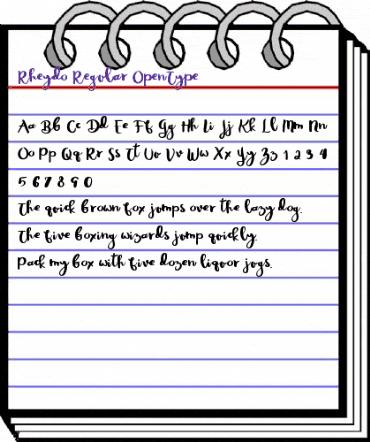 Rheydo Regular OpenType
Aa Bb Cc Dd Ee Ff Gg Hh Ii Jj Kk Ll Mm Nn
Oo Pp Qq Rr Ss Tt Uu Vv Ww Xx Yy Zz 1 2 3 4
5 6 7 8 9 0
The quick brown fox jumps over the lazy dog.
The five boxing wizards jump quickly.
Pack my box with five dozen liquor jugs.